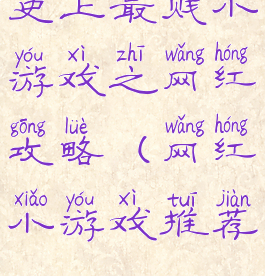 史上最贱小
yóu xì zhī wǎng hóng
游戏之网红
gōng lüè wǎng hóng
攻略（网红
xiǎo yóu xì tuī jiàn
小游戏推荐